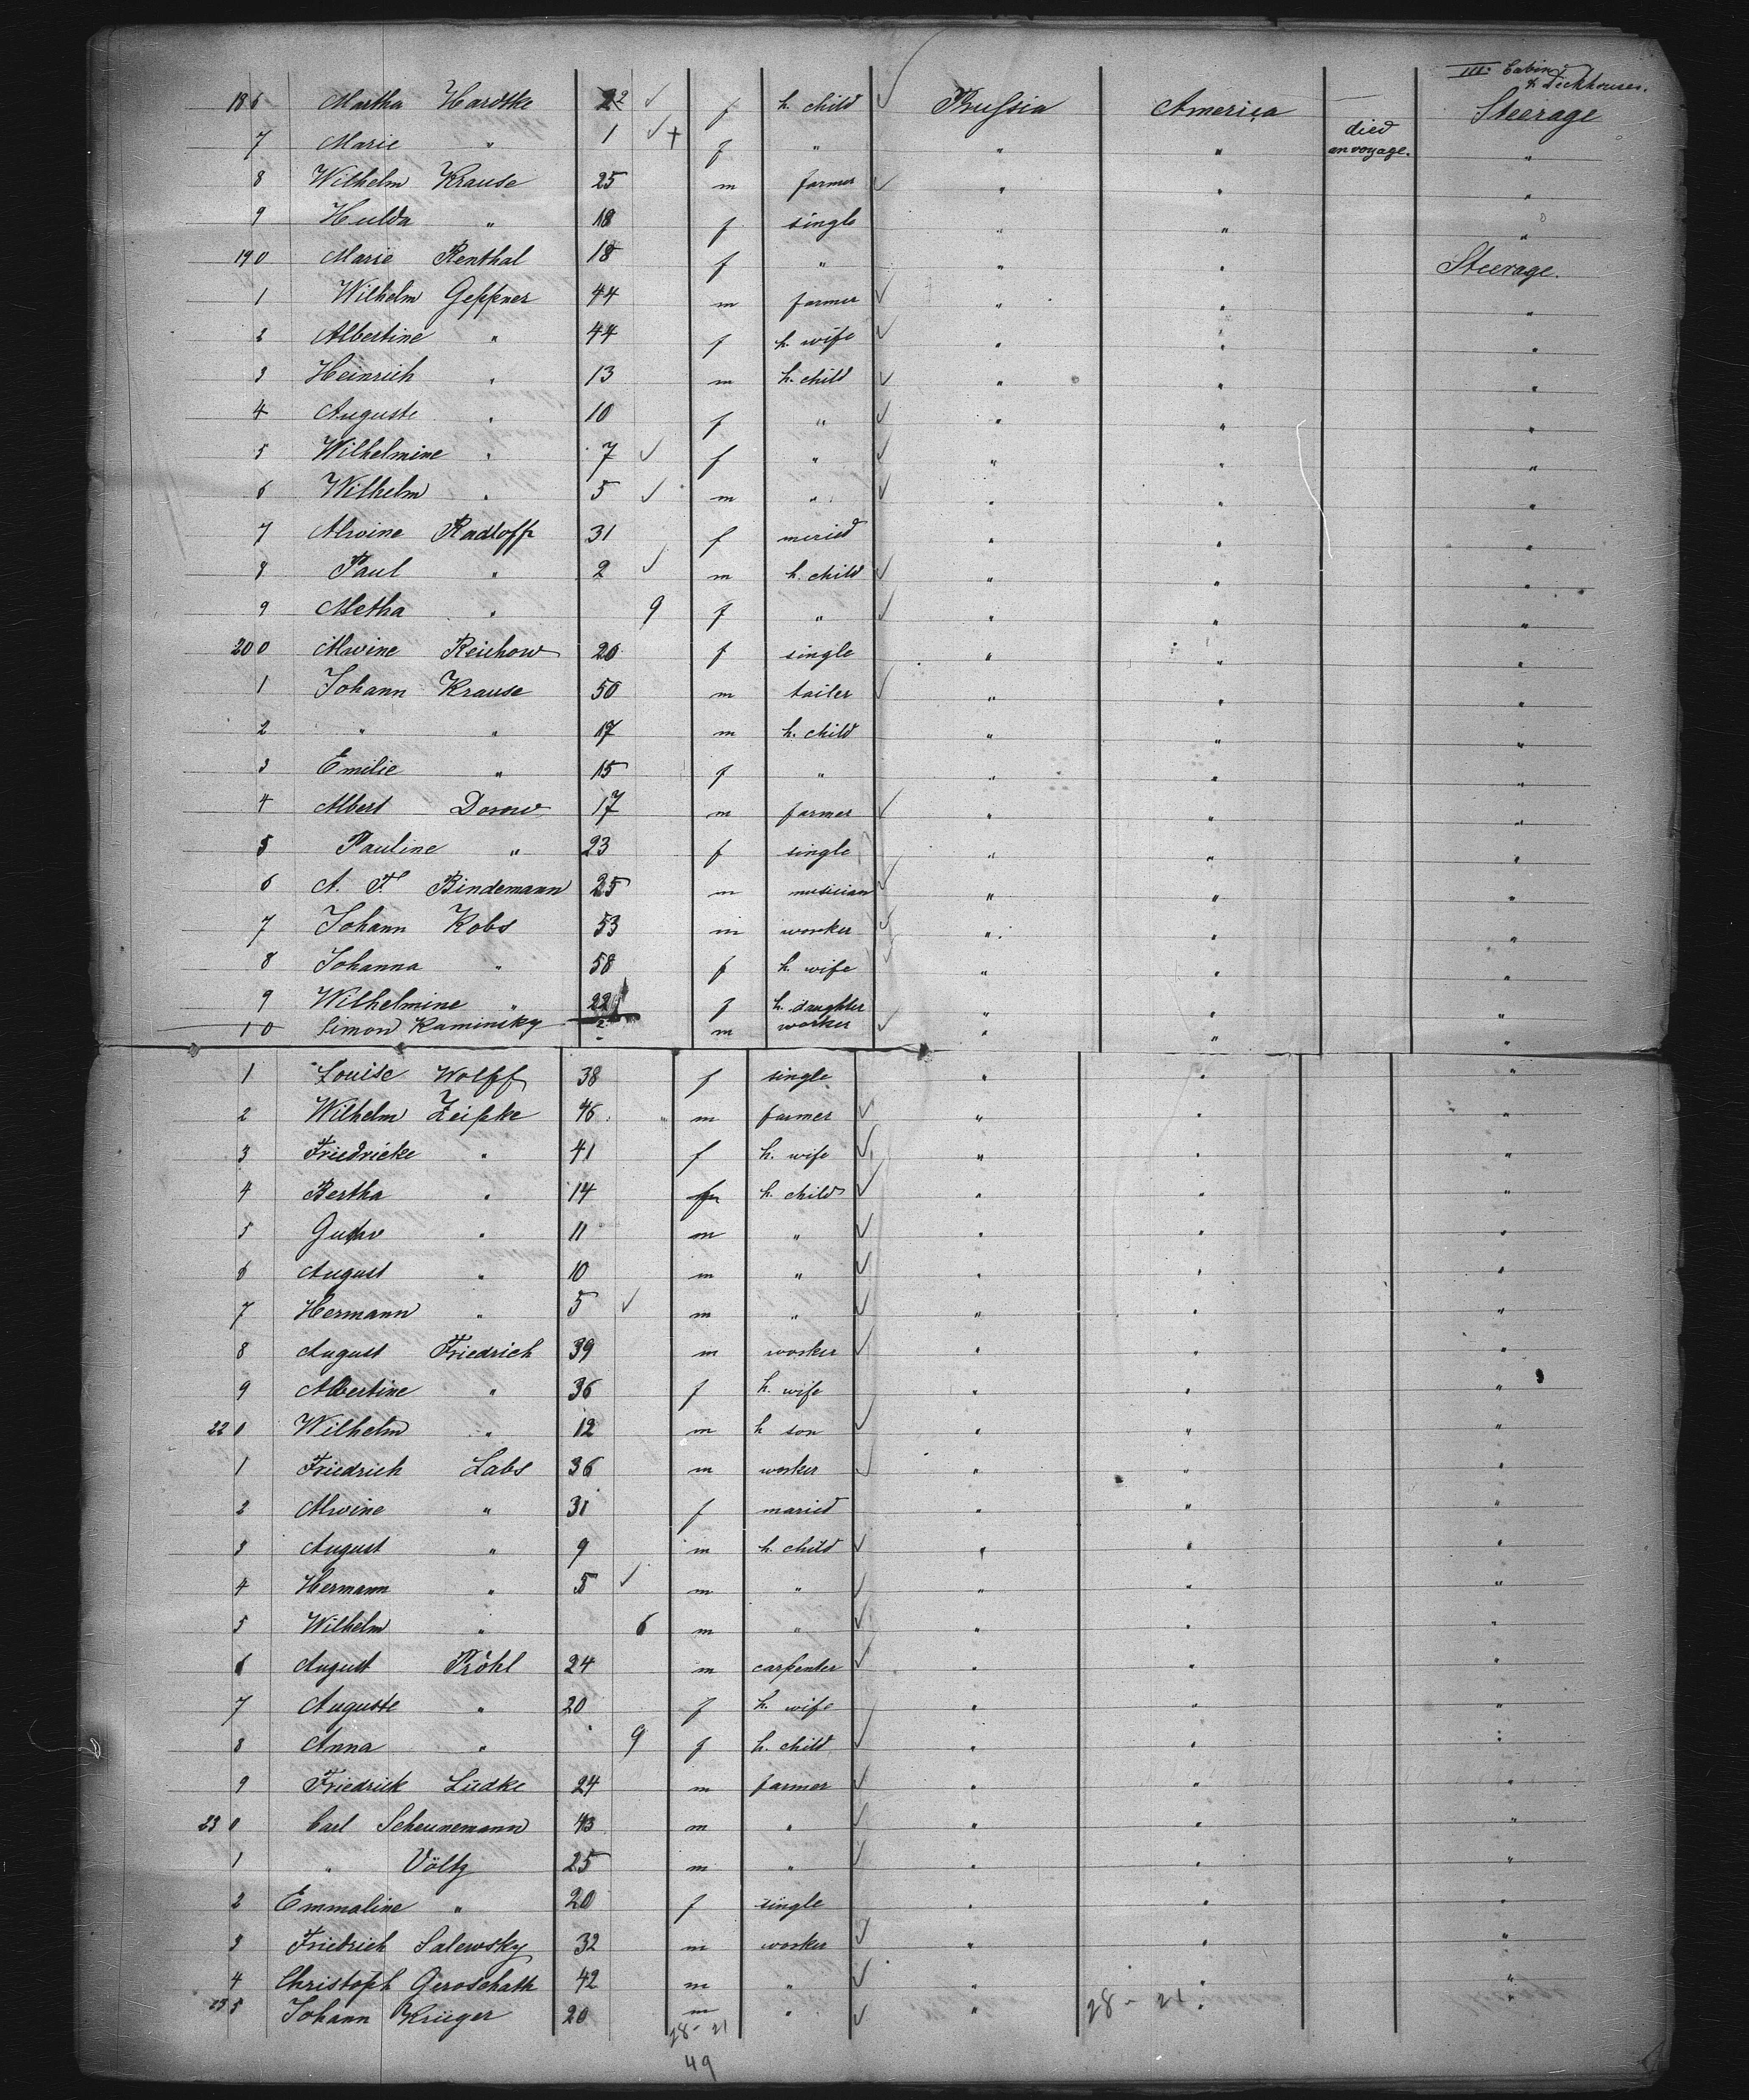 III. Cabin
& Deckhouses.
186 Martha Hardtke 2 ✓ f h. child ✓ Prussia America — Steerage
7 Marie " 1 ✓ + f " " " died on voyage. "
8 Wilhelm Krause 25 m farmer ✓ " " "
9 Hulda " 18 f single " " "
190 Marie Renthal 18 f " " " Steerage.
1 Wilhelm Geppner 44 m farmer ✓ " " "
2 Albertine " 44 f h. wife ✓ " " "
3 Heinrich " 13 m h. child ✓ " " "
4 Auguste " 10 f " ✓ " " "
5 Wilhelmine " 7 ✓ f " ✓ " " "
6 Wilhelm " 5 ✓ m " ✓ " " "
7 Alwine Radloff 31 f meried " " "
8 Paul " 2 ✓ m h. child ✓ " " "
9 Metha " 9 f " ✓ " " "
200 Alwine Reichow 20 f single " " "
1 Johann Krause 50 m tailer ✓ " " "
2 " " 17 m h. child " " "
3 Emilie " 15 f " " " "
4 Albert Dorow 17 m farmer ✓ " " "
5 Pauline " 23 f single " " "
6 A. F. Bindemann 25 m musician ✓ " " "
7 Johann Kobs 53 m worker ✓ " " "
8 Johanna " 58 f h. wife ✓ " " "
9 Wilhelmine " 22 f h. daughter " " "
10 Simon Kaminsky m worker ✓ " " "
1 Louise Wolff 38 f single " " "
2 Wilhelm Zeipke 46 m farmer ✓ " " "
3 Friedricke " 41 f h. wife ✓ " " "
4 Bertha " 14 f h. child ✓ " " "
5 " 11 m " ✓ " " "
6 August " 10 m " ✓ " " "
7 Hermann " 5 ✓ m " ✓ " " "
8 August Friedrich 39 m worker ✓ " " "
9 Albertine " 36 f h. wife " " "
220 Wilhelm " 12 m h son ✓ " " "
1 Friedrich Labs 36 m worker ✓ " " "
2 Alwine " 31 f maried " " "
3 August " 9 m h. child ✓ " " "
4 Hermann " 5 ✓ m " ✓ " " "
5 Wilhelm " 6 m " ✓ " " "
6 August Pröhl 24 m carpenter ✓ " " "
7 Auguste " 20 f h. wife " " "
8 Anna " 9 f h. child ✓ " " "
9 Friedrick Lüdke 24 m farmer ✓ " " "
230 Carl Scheunemann 43 m " ✓ " " "
1 " Völtz 25 m " ✓ " " "
2 Emmaline " 20 f single " " "
3 Friedrich Salewsky 32 m worker ✓ " " "
4 Christoph Geroschath 42 m " ✓ " " "
235 Johann Krüger 20 m " ✓ " 28 - 21 " "
28 - 21
49